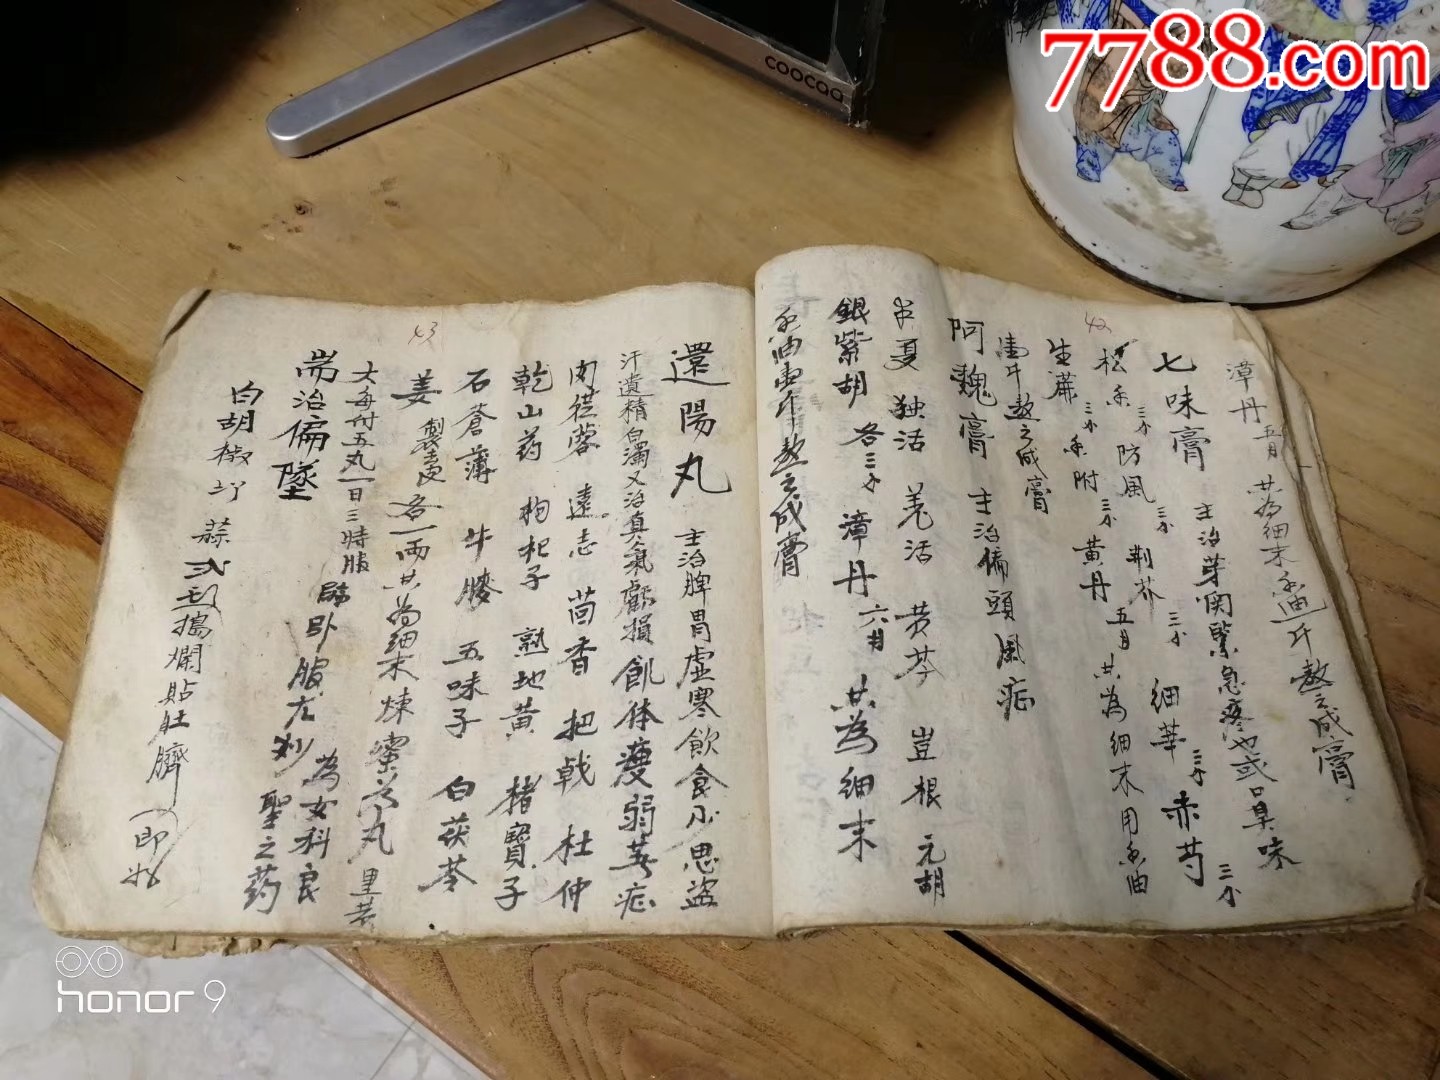 7788.com
coocaa
42
漳丹五 共為細末 斤熬之成膏
七味膏 主治芽関緊急疼也或口臭味
松香三分 防風三分 荆芥三分 細莘三分 赤芍三分
生蔴三分 香附三分 黄丹五 共為細末用香油
壹斤熬之成膏
阿魏膏 主治偏頭風症
半夏 独活 羌活 黄芩 豈根 元胡
銀紫胡 各三分 漳丹六 共為細末
香油壹斤熬之成膏
43
還陽丸 主治脾胃虚寒飲食小思盗
汗遺精白濁又治真氣虧損飢体瘦弱等症
肉蓯蓉 遠志 茴香 把戟 杜仲
乾山药 枸杞子 熟地黄 楮寶子
石蒼薄 牛膝 五味子 白茯苓
姜製 各一兩共為細末煉蜜為丸
大每付五丸一日三時服 卧服 為女科良
耑治偏墜 聖之药
白胡椒 蒜弍 搗爛貼肚臍(即好
honor 9